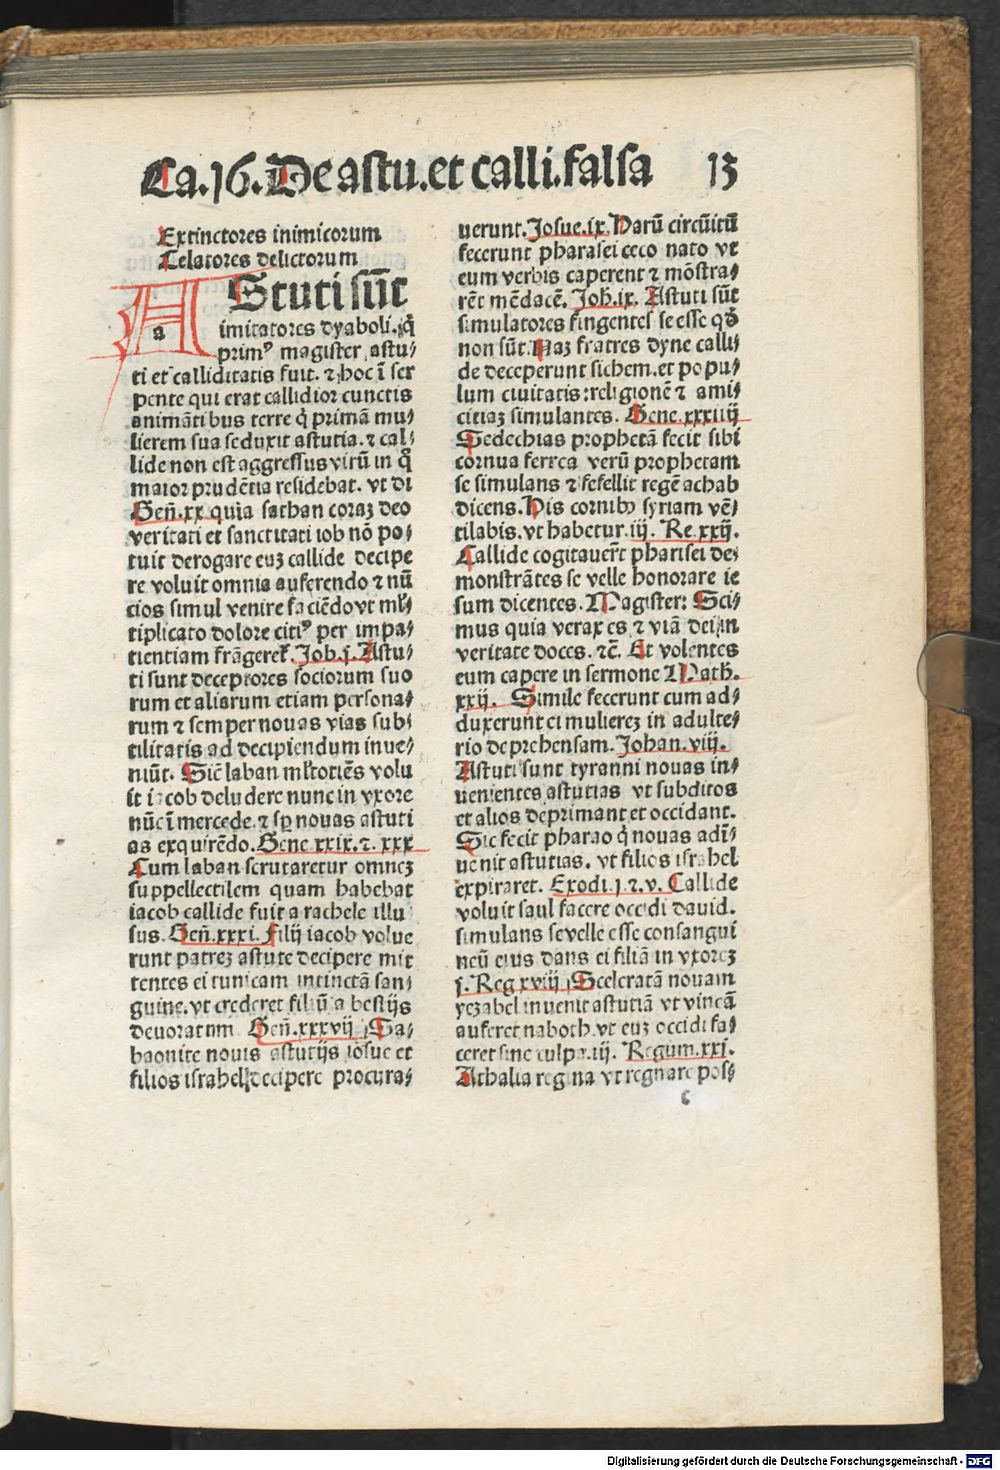 Ca.16.De astu.et calli.falsa 13
Extinctores inimicorum
Celatores delictorum
AStuti sūt
a
imitatores dyaboli. q̄
primꝰ magister astu⸗
ti et calliditatis fuit. ⁊ hoc ī ser
pente qui erat callidior cunctis
animātibus terre q̄ primā mu⸗
lierem sua seduxit astutia. ⁊ cal⸗
lide non est aggressus virū in q̄
maior prudētia residebat. vt dī
Geñ.xx quia sathan coraꝫ deo
veritati et sanctitati iob nō po⸗
tuit derogare euꝫ callide decipe
re voluit omnia auferendo ⁊ nū
cios simul venire faciēdo vt ml̄
tiplicato dolore citiꝰ per impa⸗
tientiam frāgeret. Job.j. Astu⸗
ti sunt deceptores sociorum suo
rum et aliorum etiam persona⸗
rum ⁊ semper nouas vias sub⸗
tilitatis ad decipiendum inue⸗
niūt. Sic̄ laban ml̄totiēs volu
it iacob deludere nunc in vxore
nūc ī mercede. ⁊ sꝑ nouas astuti
as exquirēdo. Gene.xxix.⁊. xxx
Cum laban scrutaretur omneꝫ
suppellectilem quam habebat
iacob callide fuit a rachele illu
sus. Geñ.xxxi. Filij iacob volue
runt patreꝫ astute decipere mit
tentes ei tunicam intinctā san⸗
guine. vt crederet filiū a bestijs
deuoratum Geñ.xxxvij Ga⸗
baonite nouis astutijs iosue et
filios israhel decipere procura⸗
uerunt. Josue.ix. Parū circūitū
fecerunt pharasei ceco nato vt
eum verbis caperent ⁊ mōstra⸗
rēt mēdacē. Joh̄.ix. Astuti sūt
simulatores fingentes se esse qd̄
non sūt. Naꝫ fratres dyne calli⸗
de deceperunt sichem. et popu⸗
lum ciuitatis: religionē ⁊ ami⸗
citiaꝫ simulantes. Gene.xxxiiij
Sedechias prophetā fecit sibi
cornua ferrea verū prophetam
se simulans ⁊ fefellit regē achab
dicens. His cornibꝰ syriam vē⸗
tilabis. vt habetur.iij. Re.xxij.
Callide cogitauer̄t pharisei de⸗
monstrātes se velle honorare ie
sum dicentes. Magister: Sci⸗
mus quia verax es ⁊ viā dei in
veritate doces. ⁊c̄. Et volentes
eum capere in sermone Math.
xxij. Simile fecerunt cum ad⸗
duxerunt ei muliereꝫ in adulte⸗
rio deprehensam. Johan.viij.
Astuti sunt tyranni nouas in⸗
uenientes astutias vt subditos
et alios deprimant et occidant.
Sic fecit pharao q̄ nouas adī⸗
uenit astutias. vt filios israhel
expiraret. Exodi.j.⁊.v. Callide
voluit saul facere occidi dauid.
simulans se velle esse consangui
neū eius dans ei filiā in vxoreꝫ
j. Reg xviij Scelerata nouam
yezabel inuenit astutiā vt vineā
auferet naboth. vt euꝫ occidi fa⸗
ceret sine culpa.iij. Regum.xxi.
Athalia regina vt regnare pos⸗
c
Digitalisierung gefördert durch die Deutsche Forschungsgemeinschaft - DFG